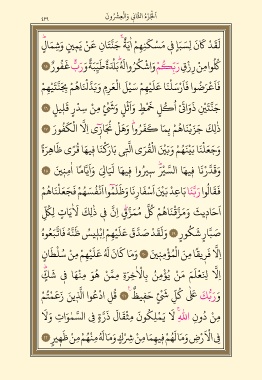 اَلْجُزْءُ الثَّانِي وَالْعِشْرُونَ
٤٢٩
لَقَدْ كَانَ لِسَبَاٍ فِى مَسْكَنِهِمْ اٰيَةٌ جَنَّتَانِ عَنْ يَمِينٍ وَشِمَالٍ
كُلُوا مِنْ رِزْقِ رَبِّكُمْ وَاشْكُرُوا لَهُ بَلْدَةٌ طَيِّبَةٌ وَرَبٌّ غَفُورٌ ١٥
فَاَعْرَضُوا فَاَرْسَلْنَا عَلَيْهِمْ سَيْلَ الْعَرِمِ وَبَدَّلْنَاهُمْ بِجَنَّتَيْهِمْ
جَنَّتَيْنِ ذَوَاتَىْ اُكُلٍ خَمْطٍ وَاَثْلٍ وَشَىْءٍ مِنْ سِدْرٍ قَلِيلٍ ١٦
ذٰلِكَ جَزَيْنَاهُمْ بِمَا كَفَرُوا وَهَلْ نُجَازِى اِلَّا الْكَفُورَ ١٧
وَجَعَلْنَا بَيْنَهُمْ وَبَيْنَ الْقُرَى الَّتِى بَارَكْنَا فِيهَا قُرًى ظَاهِرَةً
وَقَدَّرْنَا فِيهَا السَّيْرَ سِيرُوا فِيهَا لَيَالِىَ وَاَيَّامًا اٰمِنِينَ ١٨
فَقَالُوا رَبَّنَا بَاعِدْ بَيْنَ اَسْفَارِنَا وَظَلَمُوا اَنْفُسَهُمْ فَجَعَلْنَاهُمْ
اَحَادِيثَ وَمَزَّقْنَاهُمْ كُلَّ مُمَزَّقٍ اِنَّ فِى ذٰلِكَ لَاٰيَاتٍ لِكُلِّ
صَبَّارٍ شَكُورٍ ١٩ وَلَقَدْ صَدَّقَ عَلَيْهِمْ اِبْلِيسُ ظَنَّهُ فَاتَّبَعُوهُ
اِلَّا فَرِيقًا مِنَ الْمُؤْمِنِينَ ٢٠ وَمَا كَانَ لَهُ عَلَيْهِمْ مِنْ سُلْطَانٍ
اِلَّا لِنَعْلَمَ مَنْ يُؤْمِنُ بِالْاٰخِرَةِ مِمَّنْ هُوَ مِنْهَا فِى شَكٍّ
وَرَبُّكَ عَلٰى كُلِّ شَىْءٍ حَفِيظٌ ٢١ قُلِ ادْعُوا الَّذِينَ زَعَمْتُمْ
مِنْ دُونِ اللّٰهِ لَا يَمْلِكُونَ مِثْقَالَ ذَرَّةٍ فِى السَّمٰوَاتِ وَلَا
فِى الْاَرْضِ وَمَا لَهُمْ فِيهِمَا مِنْ شِرْكٍ وَمَا لَهُ مِنْهُمْ مِنْ ظَهِيرٍ ٢٢